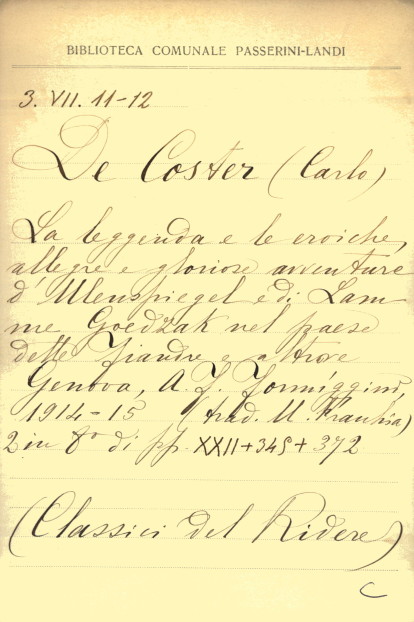 BIBLIOTECA COMUNALE PASSERINI-LANDI
3. VII. 11-12
De Coster (Carlo)
La leggenda e le eroiche,
allegre e gloriose avventure
d'Ulenspiegel e di Lam-
me Goedzak nel paese
delle Fiandre e altrove
Genova, A. F. Formíggini,
1914-15 (trad. U. Fracchia)
2 in 8° di pp. XXII+345+372
(Classici del Ridere)
C